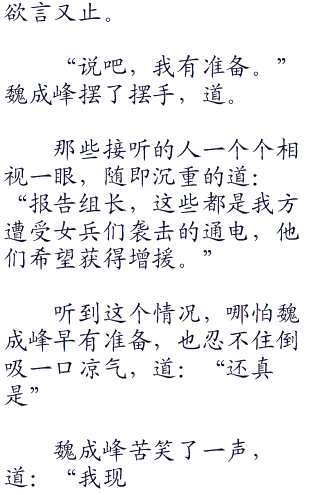 欲言又止。
“说吧，我有准备。”
魏成峰摆了摆手，道。
那些接听的人一个个相
视一眼，随即沉重的道：
“报告组长，这些都是我方
遭受女兵们袭击的通电，他
们希望获得增援。”
听到这个情况，哪怕魏
成峰早有准备，也忍不住倒
吸一口凉气，道：“还真
是”
魏成峰苦笑了一声，
道：“我现